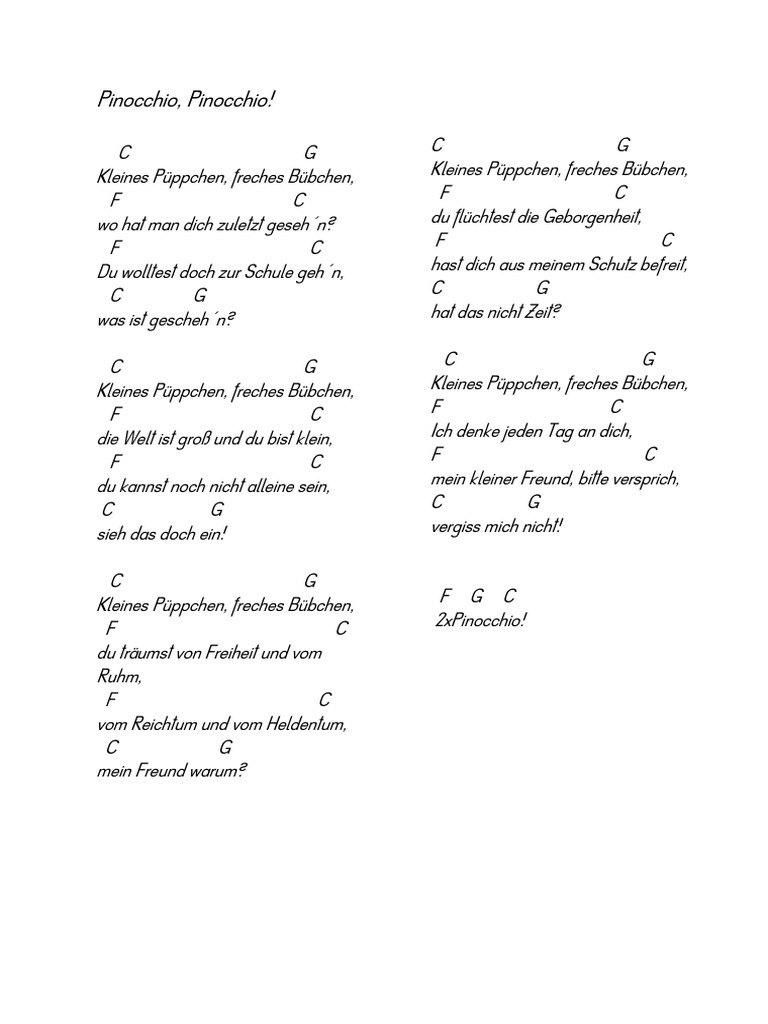 Pinocchio, Pinocchio!
C G
Kleines Püppchen, freches Bübchen,
F C
wo hat man dich zuletzt geseh´n?
F C
Du wolltest doch zur Schule geh´n,
C G
was ist gescheh´n?
C G
Kleines Püppchen, freches Bübchen,
F C
die Welt ist groß und du bist klein,
F C
du kannst noch nicht alleine sein,
C G
sieh das doch ein!
C G
Kleines Püppchen, freches Bübchen,
F C
du träumst von Freiheit und vom
Ruhm,
F C
vom Reichtum und vom Heldentum,
C G
mein Freund warum?
C G
Kleines Püppchen, freches Bübchen,
F C
du flüchtest die Geborgenheit,
F C
hast dich aus meinem Schutz befreit,
C G
hat das nicht Zeit?
C G
Kleines Püppchen, freches Bübchen,
F C
Ich denke jeden Tag an dich,
F C
mein kleiner Freund, bitte versprich,
C G
vergiss mich nicht!
F G C
2xPinocchio!